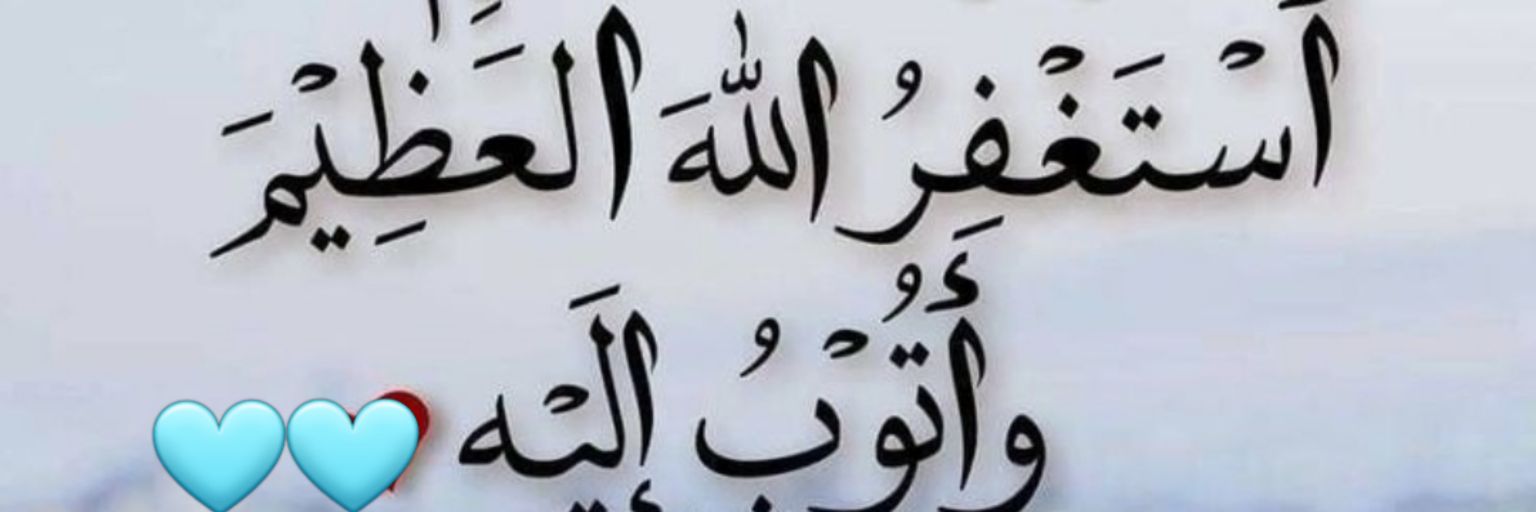 أَسْتَغْفِرُ اللّٰهَ الْعَظِيْمَ
وأَتُوْبُ إِلَيْه